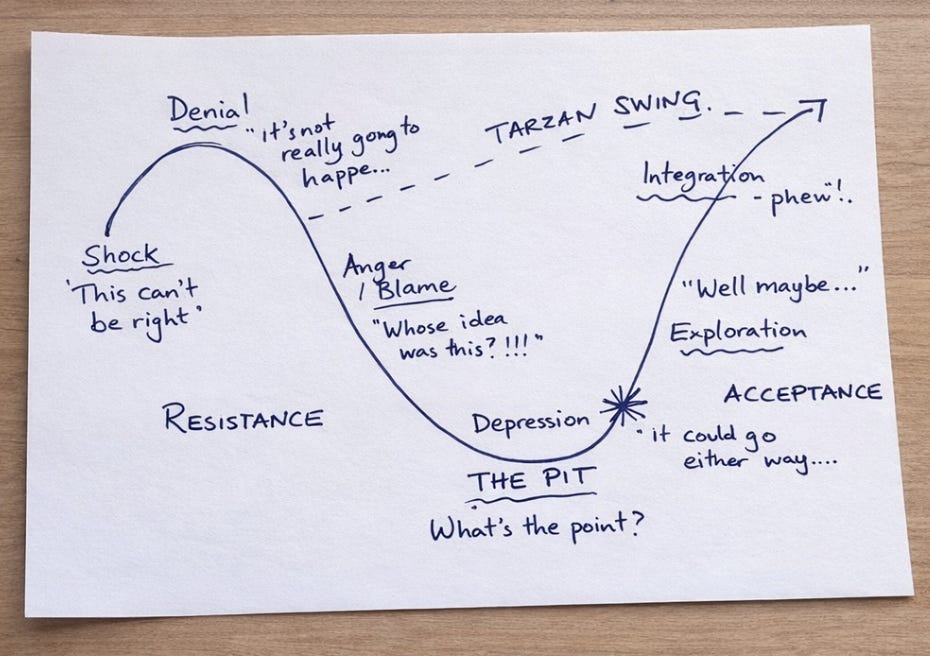 Denial
"it's not
really gong to
happe...
TARZAN SWING.
Shock
'This can't
be right"
Anger
/ Blame
"Whose idea
was this? !!!"
RESISTANCE
Depression
THE PIT
What's the point?
Integration
- phew"!.
"Well maybe..."
Exploration
ACCEPTANCE
"it could go
either way....